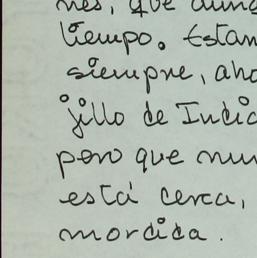 nes, que aun
tiempo. Estan
siempre, aho
jillo de Indic
pero que nun
está cerca,
mordida.